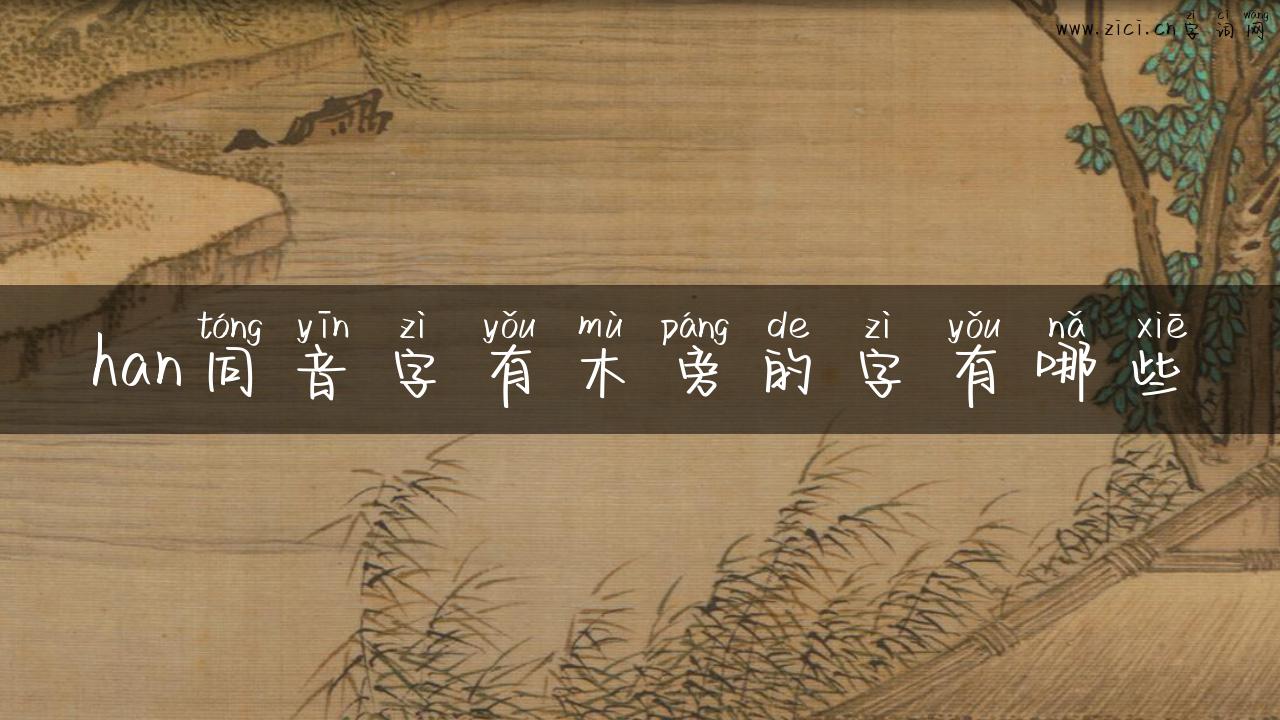 zì cí wǎng
www.zici.cn字词网
tóng yīn zì yǒu mù páng de zì yǒu nǎ xiē
han同音字有木旁的字有哪些